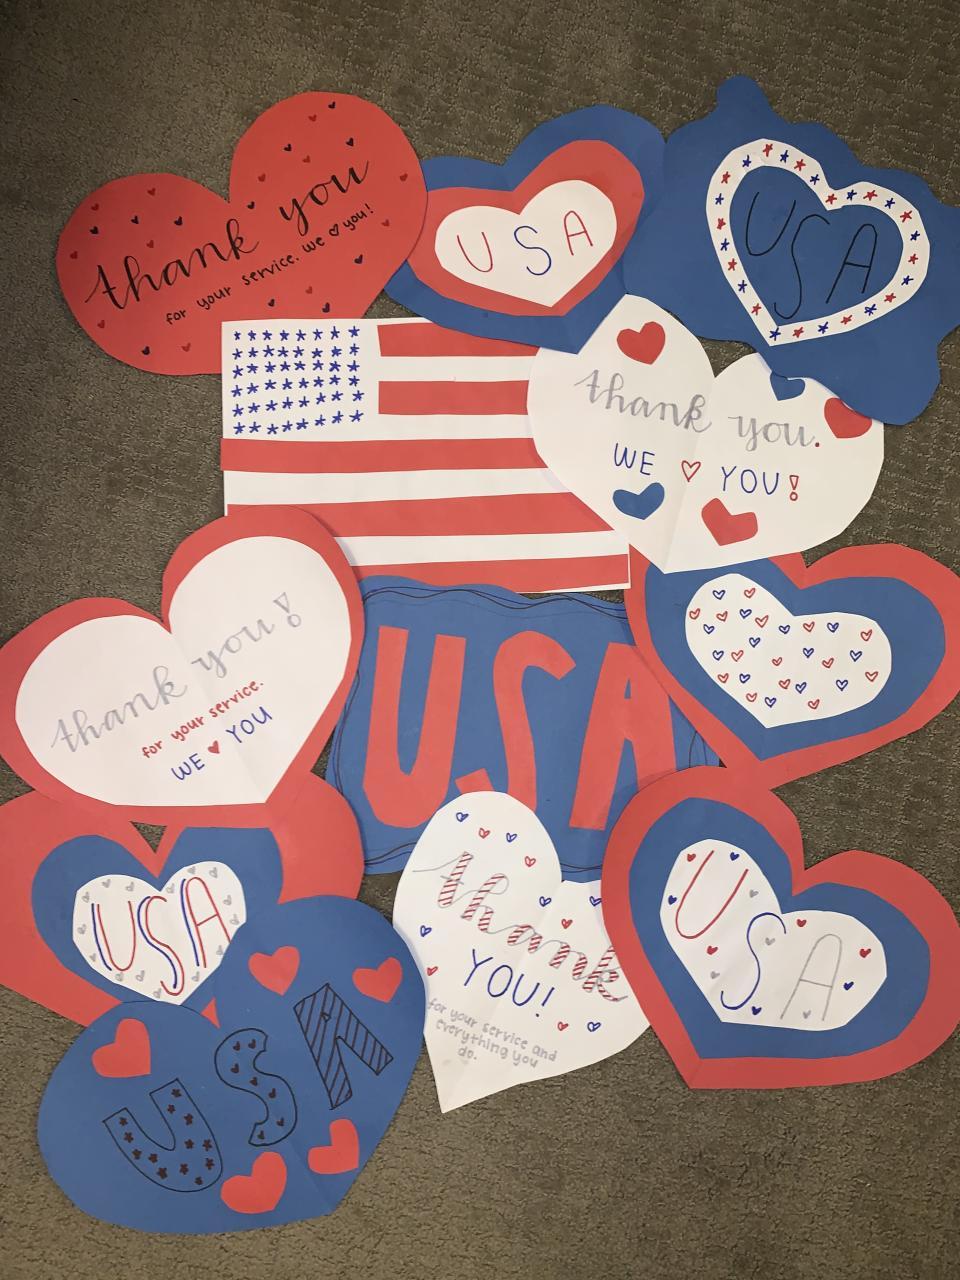 thank you
for your service. We ♥ you!
USA
USA
thank you.
WE ♡ YOU!
thank you!
for your service.
WE ♥ YOU
USA
USA
thank
YOU!
for your service and
everything you
do.
USA
USA